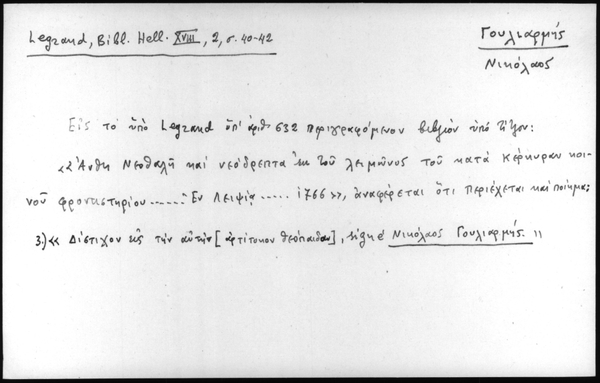 Legrand, Bibl. Hell. XVIII, 2, σ. 40-42
Γουλιαρμής
Νικόλαος
Εἰς τὸ ὑπὸ Legrand ὑπ' ἀριθ. 632 περιγραφόμενον βιβλίον ὑπὸ τίτλον:
«Ἄνθη Νεοθαλῆ καὶ νεόδρεπτα ἐκ τοῦ λειμῶνος τοῦ κατὰ Κέρκυραν κοι-
νοῦ φροντιστηρίου ...... Ἐν Λειψίᾳ ..... 1766», ἀναφέρεται ὅτι περιέχεται καὶ ποίημα:
3.) « Δίστιχον εἰς τὴν αὐτὴν [ἀρτίτοκον θεόπαιδα], signé Νικόλαος Γουλιαρμής. »